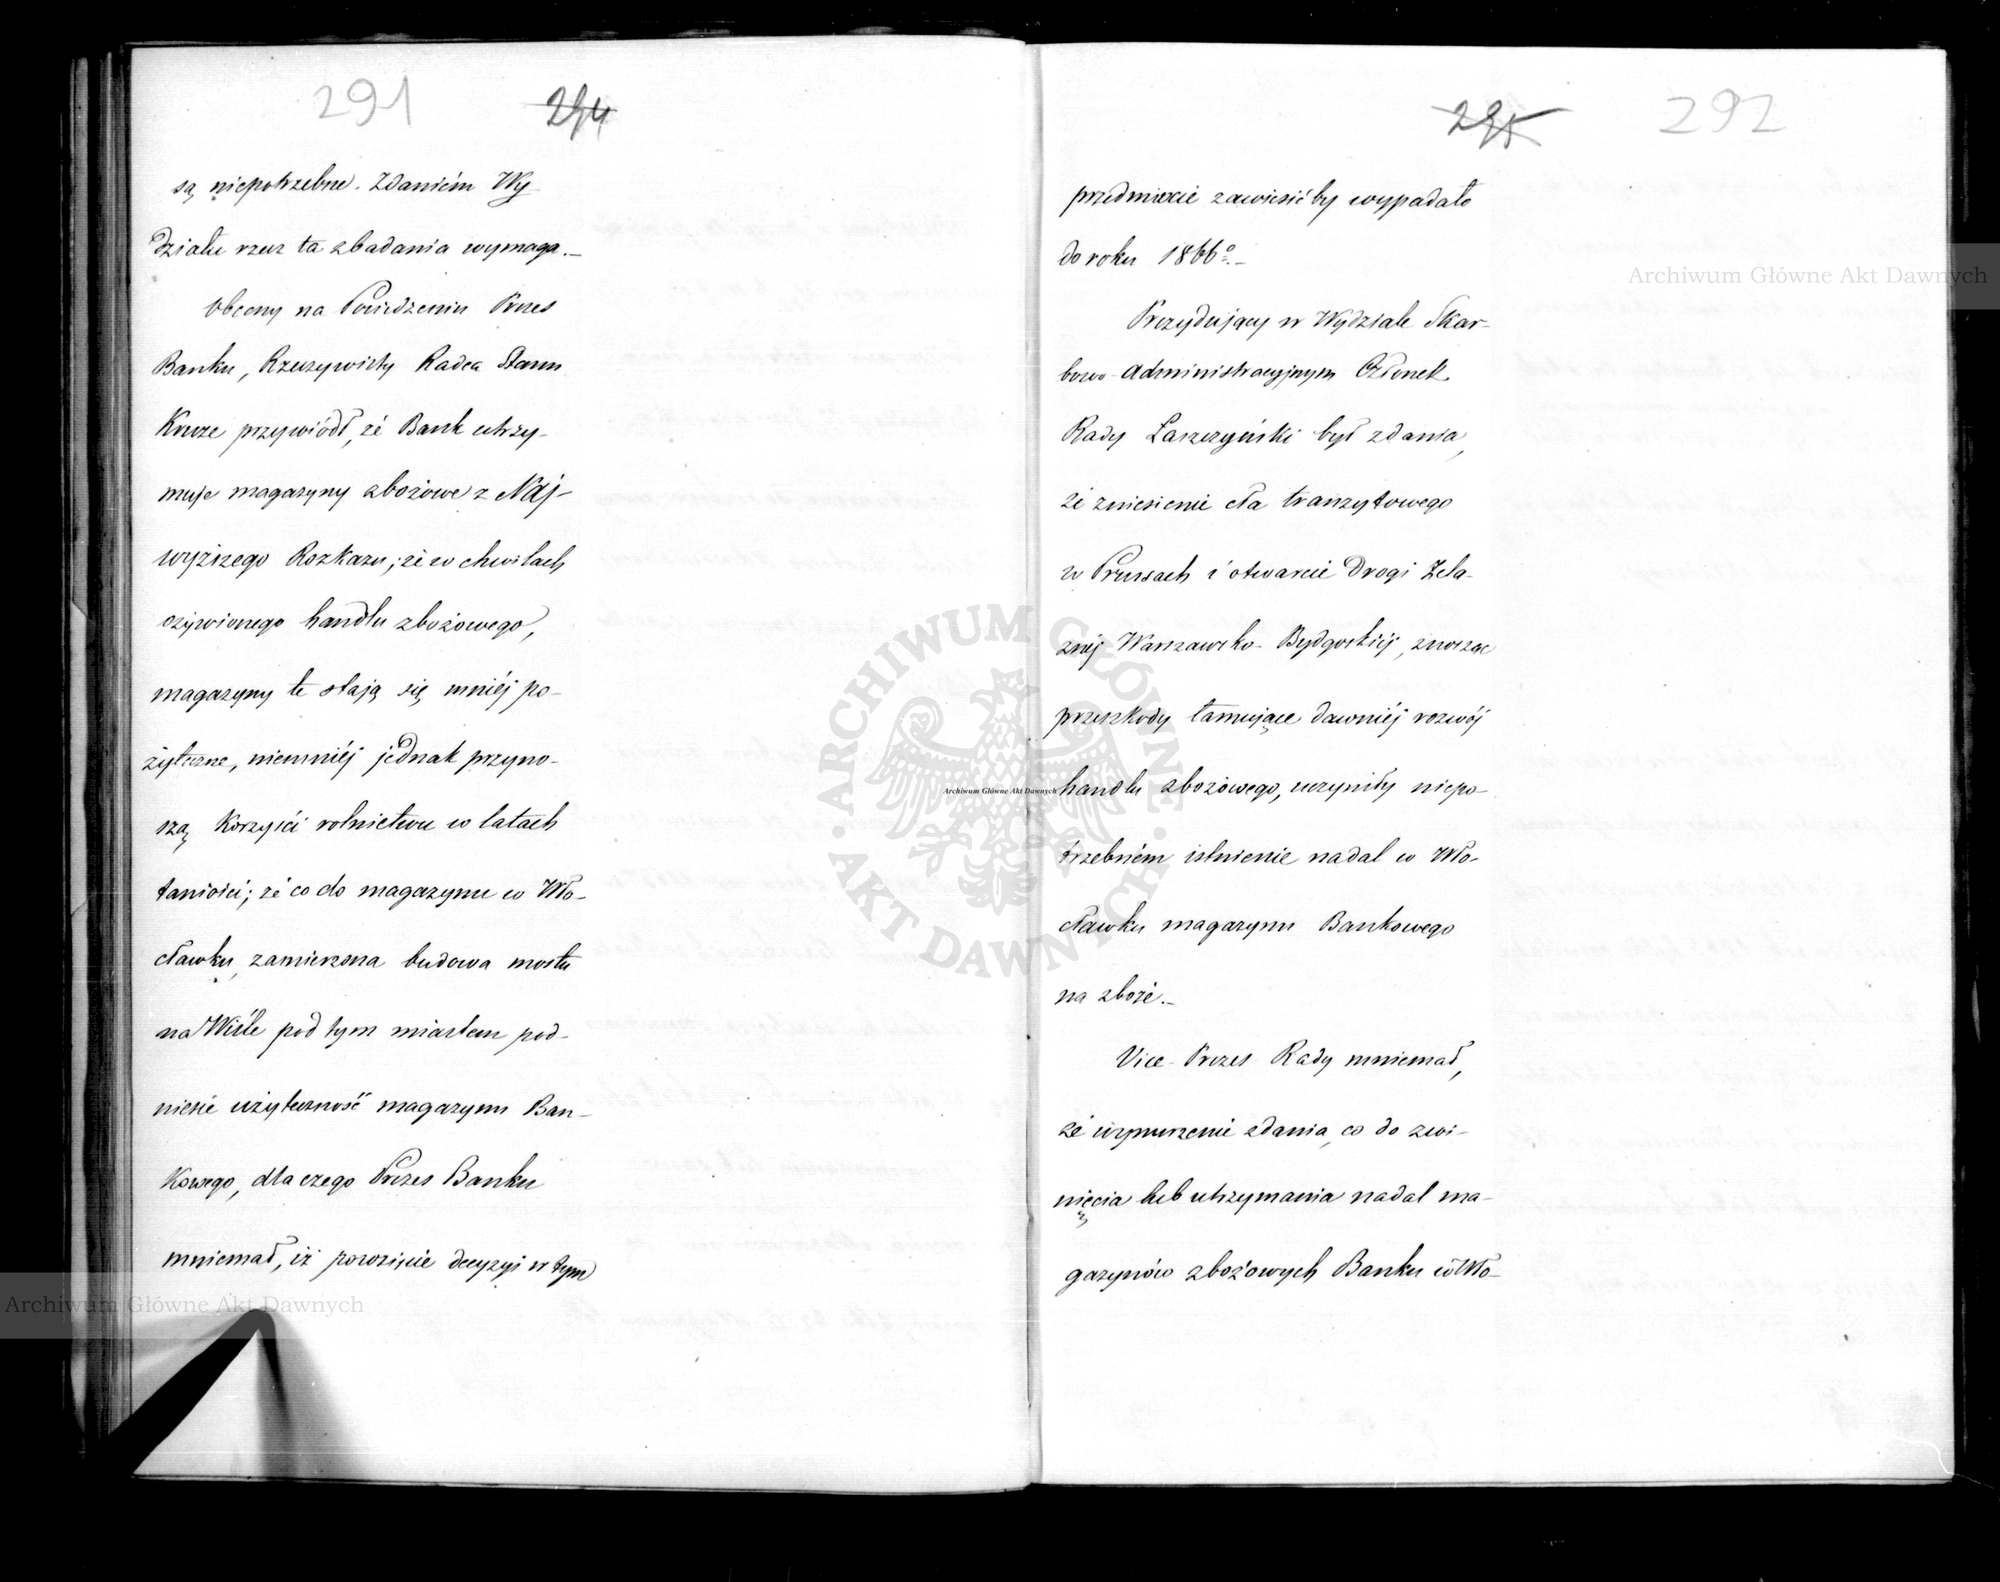 291 294
są niepotrzebne. Zdaniém Wy-
działu rzecz ta zbadania wymaga.—
Obecny na Posiedzeniu Prezes
Banku, Rzeczywisty Radca Stanu
Kruze przywiódł, że Bank utrzy-
muje magazyny zbożowe z Naj-
wyższego Rozkazu; że w chwilach
ożywionego handlu zbożowego,
magazyny te stają się mniéj po-
żyteczne, niemniéj jednak przyno-
szą korzyści rolnictwu w latach
taniości; że co do magazynu w Wło-
cławku, zamierzona budowa mostu
na Wiśle pod tym miastem pod-
niesie użyteczność magazynu Ban-
kowego, dla czego Prezes Banku
mniemał, iż powzięcie decyzyi w tym
295 292
przedmiocie zawiesićby wypadało
do roku 1866º.—
Prezydujący w Wydziale Skar-
bowo-Administracyjnym Członek
Rady Łaszczyński był zdania,
że zniesienie cła tranzytowego
w Prussach i otwarcie Drogi Żela-
znéj Warszawsko-Bydgoskiéj, znosząc
przeszkody tamujące dawniéj rozwój
handlu zbożowego, uczyniły niepo-
trzebném istnienie nadal w Wło-
cławku magazynu Bankowego
na zboże.—
Vice-Prezes Rady mniemał,
że wypurzenie zdania, co do zwi-
nięcia lub utrzymania nadal ma-
gazynów zbożowych Banku w Wło-
Archiwum Główne Akt Dawnych
Archiwum Główne Akt Dawnych
Archiwum Główne Akt Dawnych
ARCHIWUM GŁÓWNE · AKT DAWNYCH ·